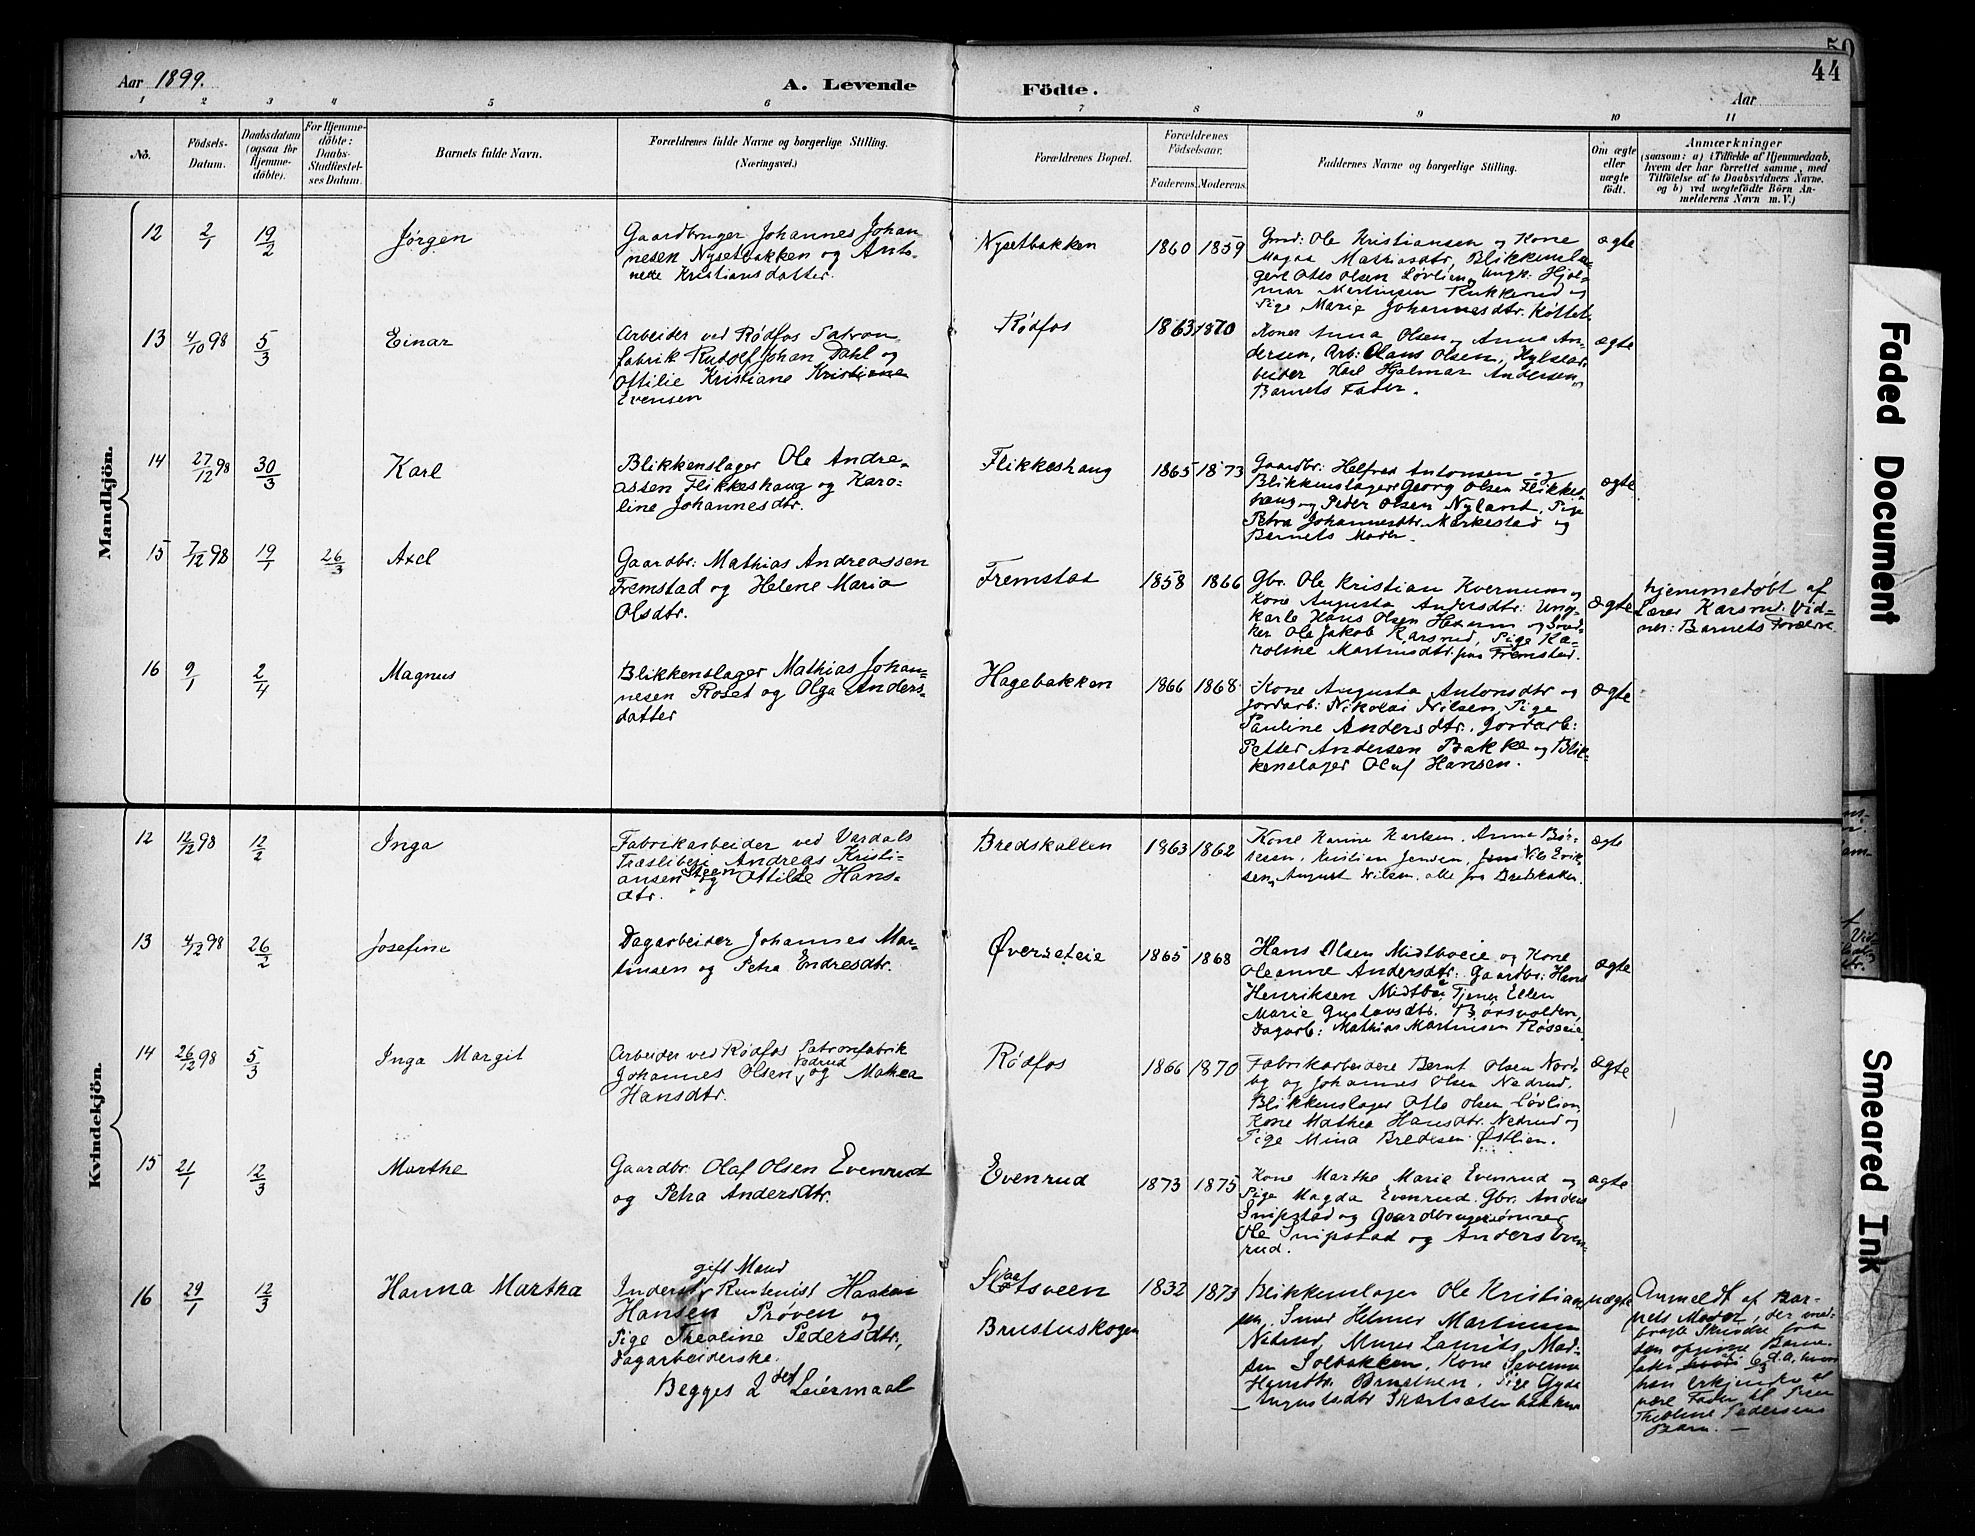 50
44
Aar 1899.
A. Levende
Födte.
Aar
1 2 3 4 5 6 7 8 9 10 11
No.
Födsels-
Datum.
Daabsdatum
(ogsaa for
Hjemme-
döbte).
For Hjemme-
döbte:
Daabs-
Stadfæstel-
ses Datum.
Barnets fulde Navn.
Forældrenes fulde Navne og borgerlige Stilling.
(Næringsvei.)
Forældrenes Bopæl.
Forældrenes
Födselsaar.
Faderens. Moderens.
Faddernes Navne og borgerlige Stilling.
Om ægte
eller
uægte
födt.
Anmærkninger
(saasom: a) i Tilfælde af Hjemmedaab,
hvem der har forrettet samme, med
Tilföielse af to Daabsvidners Navne.
og b) ved uægtefödte Börn An-
melderens Navn m.V.)
Mandkjön.
12 2/1 19/2 Jørgen
Gaardbruger Johannes Johan
nesen Nysetbakken og Anto-
nette Kristiansdatter.
Nysetbakken 1860 1859
Gmd: Ole Kristiansen og Kone
Magda Mathiasdtr, Blikkensla-
gere Otto Olsen Løvlien, Ungk. Hjal-
mar Martinsen Rukkerud og
Pige Marie Johannesdtr.
ægte
13 4/10 98 5/3 Einar
Arbeider ved Rødfos Patron
fabrik Rudolf Johan Dahl og
Ottilie Kristiane Kristiane
Evensen
Rødfos 1863 1870
Koner Anna Olsen og Anna An-
dersen, Arb: Olaus Olsen,
beider Karl Hjalmar Andersen,
Barnets Fader.
ægte
14 27/12 98 30/3 Karl
Blikkenslager Ole Andre-
assen Flikkeshaug og Karo-
line Johannesdtr.
Flikkeshaug 1865 1873
Gaardbr: Helfred Antonsen og
Blikkenslagere Georg Olsen Flikkes-
haug og Peder Olsen Nyland, Pige
Petra Johannesdtr. Markestad og
Barnets Moder.
ægte
15 7/12 98 19/1 26/3 Axel
Gaardbr: Mathias Andreassen
Fremstad og Helene Maria
Olsdtr.
Fremstad 1858 1866
Gbr. Ole Kristian Kvernum og
Kone Augusta Andersdtr: Ung-
karle Hans Olsen
ker Ole Jakob Karsrud, Pige Ka-
roline Martinsdtr. fra Fremstad.
ægte
hjemmedøbt af
Lærer Karsrud. Vid-
ner: Barnets Forældre.
16 9/1 2/4 Magnus
Blikkenslager Mathias Johan-
nesen Roset og Olga Anders-
datter
Hagebakken 1866 1868
Kone Augusta Antonsdtr og
Jordarb: Nikolai Nilsen, Pige
Pauline Andersdtr. Jordarb:
Petter Andersen Bakke og Blik-
kenslager Olaf Hansen.
ægte
Kvindekjön.
12 12/12 98 12/2 Inga
Fabrikarbeider ved Vardals
Træsliberi Andreas Kristi-
ansen Steen og Ottilde Hans-
dtr.
Bredskallen 1863 1862
Kone Karine Karlsen. Anna Bør-
resen, Kristian Jensen, Jens Nils Erik-
sen, August Nilsen, alle fra Bredskallen.
ægte
13 4/12 98 26/2 Josefine
Dagarbeider Johannes Mar-
tinsen og Petra Endresdtr.
Øverseteie 1865 1868
Hans Olsen Midtbøeie og Kone
Oleanne Andersdtr. Gaardbr: Hans
Henriksen Midtbø, Tjener Ellen
Marie Gustavsdtr.
Dagarb: Mathias Martinsen
ægte
14 26/12 98 5/3 Inga Margit
Arbeider ved Rødfos Patronfabrik
Johannes Olsen Nedrud og Mathea
Hansdtr.
Rødfos 1866 1870
Fabrikarbeidere Bernt Olsen Nord-
by og Johannes Olsen Nedrud.
Blikkenslager Otto Olsen Løvlien,
Kone Mathea Hansdtr. Nedrud og
Pige Mina Bredesen Østlien.
ægte
15 21/1 12/3 Marthe
Gaardbr. Olaf Olsen Evenrud
og Petra Andersdtr.
Evenrud 1873 1875
Kone Marthe Marie Evenrud og
Pige Magda Evenrud. Gbr. Anders
Snipstad og Gaardbrugersønner
Ole Snipstad og Anders Even-
rud.
ægte
16 29/1 12/3 Hanna Martha
gift Mand
Inderst, Rentenist Haaken
Hansen Prøven og
Pige Theoline Pedersdtr,
Dagarbeiderske.
Begges 2det Leiermaal
Slaatsveen 1832 1873
Brustuskogen
Blikkenslager Ole Kristian
sen, Smed Helmer Martinsen
Nedrud, Murer Laurits Mad-
sen Solbakken, Kone Severine
Pige Gyda
Augustsdtr
uægte
Anmeldt af Bar-
nets Moder, der med-
bragte Skrivelse fra
den opgivne Barne
fader d.a, hvori
han erkjender at
være Fader til Pigen
Theoline Pedersens
Barn. —
Faded Document
Smeared Ink